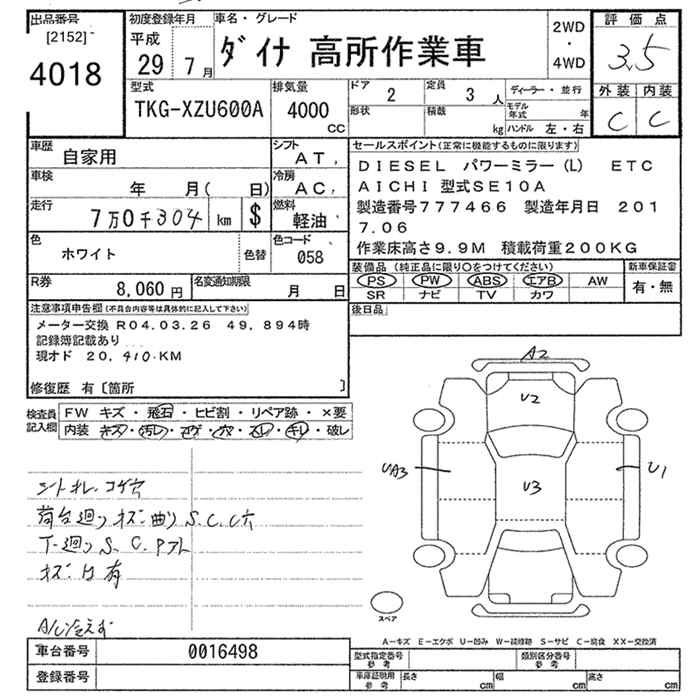 出品番号
[2152]
4018
初度登録年月
平成
29 7月
車名・グレード
ダイナ 高所作業車
2WD
・
4WD
評価点
3.5
外装 内装
C C
型式
TKG-XZU600A
排気量
4000
CC
ドア 2
定員 3 人
ディーラー・並行
形状
積載 kg
モデル年式 年
ハンドル 左・右
車歴
自家用
シフト
AT
車検
年 月( 日)
冷房
AC
走行
7万0千304 km $
燃料
軽油
色
ホワイト
色替
色コード
058
R券
8,060円
名変通知期限
月 日
セールスポイント(正常に機能するものに限ります)
DIESEL パワーミラー(L) ETC
AICHI 型式SE10A
製造番号777466 製造年月日 201
7.06
作業床高さ9.9M 積載荷重200KG
装備品 (純正品に限り○をつけてください)
新車保証書
PS PW ABS エアB AW
SR ナビ TV カワ
有・無
後日品
注意事項申告欄(不具合内容等は具体的に記入して下さい)
メーター交換 R04.03.26 49,894時
記録簿記載あり
現オド 20,410KM
修復歴 有〔箇所 〕
検査員記入欄
FW キズ・飛石・ヒビ割・リペア跡・×要
内装 キズ・汚レ・コゲ・穴・スレ・キレ・破レ
シートオレ、コゲ穴
荷台廻り キズ・曲り S.C.C穴
下廻り S.C.Pアト
キズ・凹有
A/C冷えず
A2
U2
UA3
U3
U1
スペア
A-キズ E-エクボ U-凹み W-補修跡 S-サビ C-腐食 XX-交換済
車台番号 0016498
登録番号
型式指定番号 参考
類別区分番号 参考
車庫証明用 参考
長さ cm 幅 cm 高さ cm